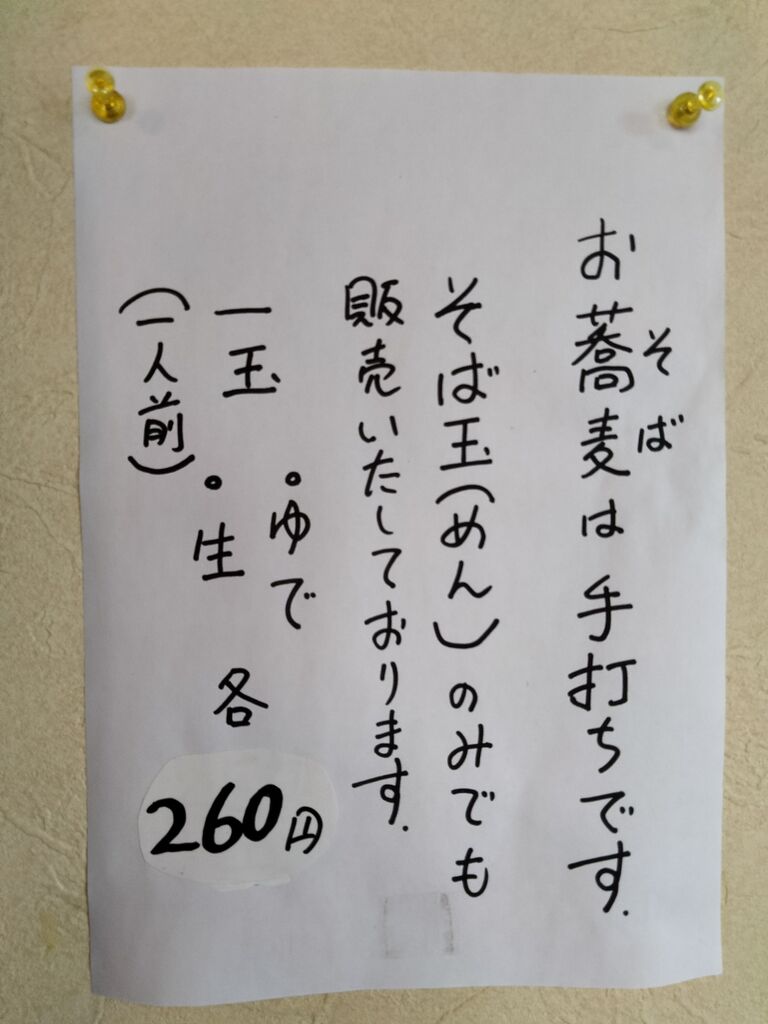 お蕎麦は手打ちです.
そば
そば玉(めん)のみでも
販売いたしております.
・ゆで
一玉
・生
各
260円
(一人前)